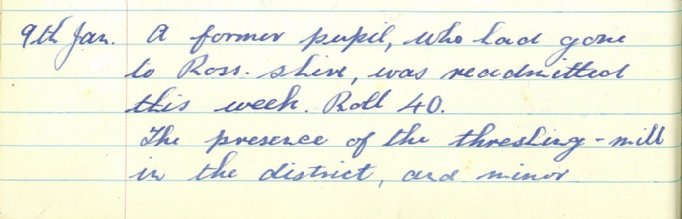 9th Jan. A former pupil, who had gone
to Ross-shire, was readmitted
this week. Roll 40.
The presence of the threshing-mill
in the district, and minor